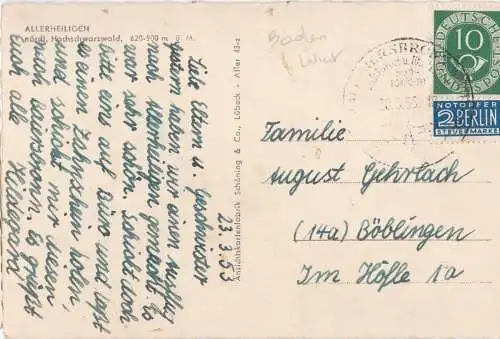 ALLERHEILIGEN
nördl. Hochschwarzwald, 620-900 m ü. M.
Baden
23.3.53
Liebe Eltern u. Geschwister
gestern haben wir einen Ausflug
nach Allerheiligen gemacht. Es
war sehr schön. Schickt noch
bitte eins auf Büro und lasst
es einen Zahnschein holen,
und schickt mir diesen
nach Baiersbronn. Es grüßt
euch alle
Hildegard
Ansichtskartenfabrik Schöning & Co., Lübeck • Aller 43-z
DEUTSCHE
BUNDESPOST
10
NOTOPFER
2 BERLIN
STEUERMARKE
Familie
August Gehrlach
(14a) Böblingen
Im Höfle 1a